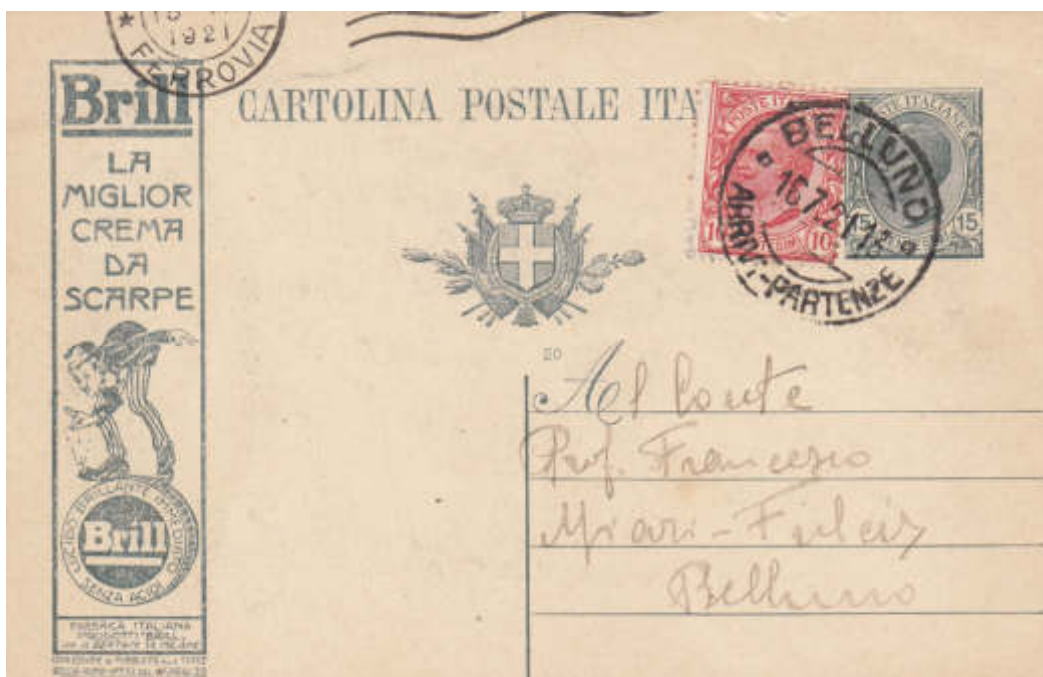 1921
* FERROVIA
Brill
LA
MIGLIOR
CREMA
DA
SCARPE
LUCIDO BRILLANTE INNEDITO
Brill
SENZA ACIDI
FABBRICA ITALIANA
PRODOTTI "BRILL"
CARTOLINA POSTALE ITA
POSTE ITALIANE
10 10
15
BELLUNO
16.7.21.18
ARRIVI-PARTENZE
20
Al Conte
Prof. Francesco
Miari-Fulcis
Belluno